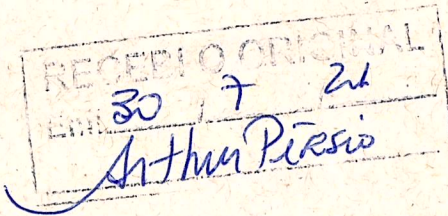 RECEBI O ORIGINAL
Em 30 / 7 / 24
Arthur Pérsio